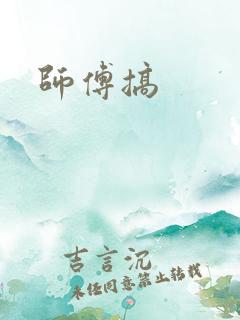 師傅搞
吉言沉
未经同意禁止转载